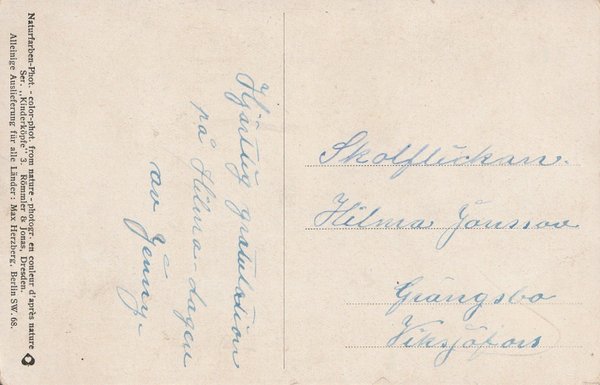 Naturfarben-Phot. - color-phot. from nature - photogr. en couleur d'après nature
Ser. „Kinderköpfe" 3. Römmler & Jonas, Dresden.
Alleinige Auslieferung für alle Länder: Max Herzberg, Berlin SW. 68.
Hjärtlig gratulation
på Hilma-dagen
av Jenny.
Skolflickan.
Hilma Jonsson
Grängsbo
Viksjöfors